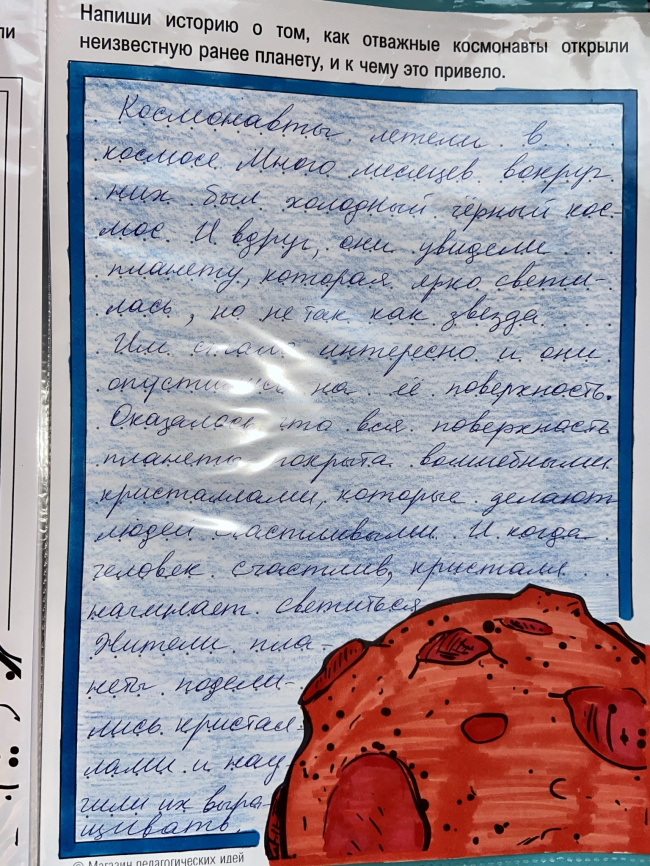 Напиши историю о том, как отважные космонавты открыли
неизвестную ранее планету, и к чему это привело.
Космонавты летели в
космосе. Много месяцев вокруг
них был холодный чёрный кос-
мос. И вдруг, они увидели
планету, которая ярко свети-
лась, но не так как звезда.
Им стало интересно и они
опустились на её поверхность.
Оказалось что вся поверхность
планеты покрыта волшебными
кристаллами, которые делают
людей счастливыми. И когда
человек счастлив, кристалл
начинает светиться
Жители пла-
неты подели-
лись кристал-
лами и нау-
чили их выра-
щивать.
© Магазин педагогических идей
ли